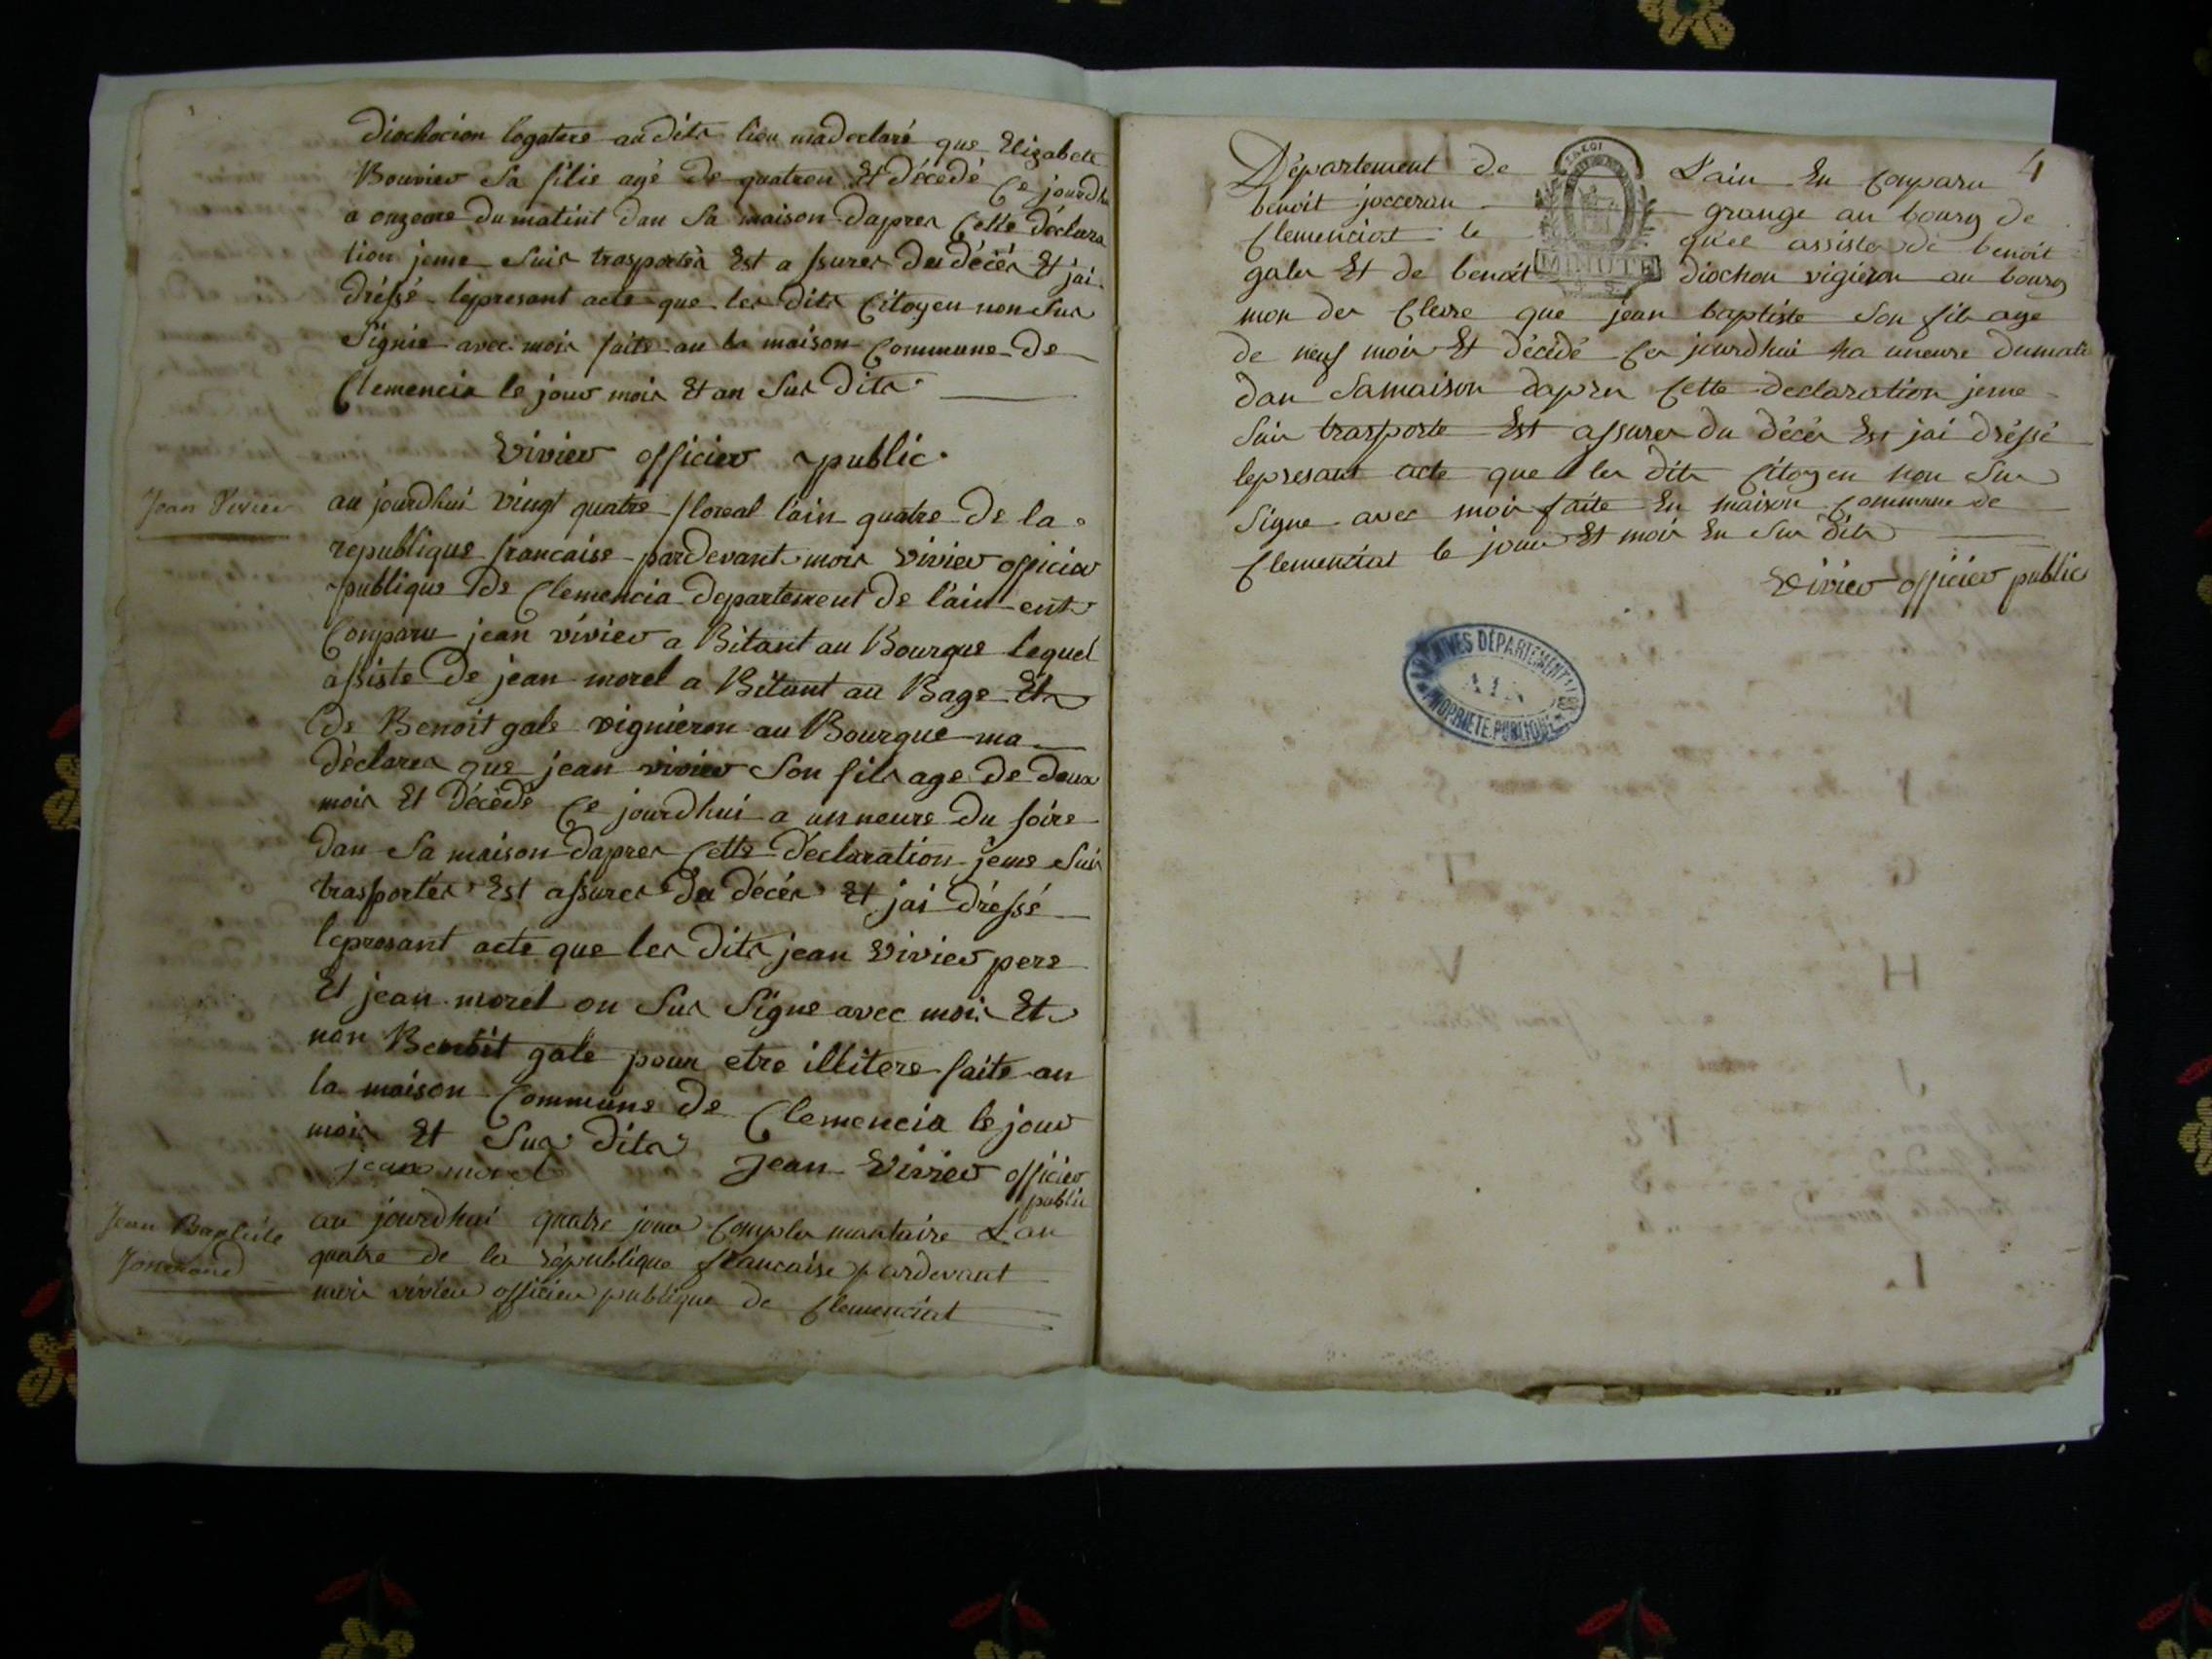 Diochocion logatere au dits lieu madeclaré que Elizabete
Bouvier sa filie agé de quatren Et décédé ce jourdh
a onzeure du matint dan sa maison daprer cette déclara
tion jeme suis trasportér Est assurer du décér Et jai
dréssé lepresant acte que les dits Citoyen non sus
signie avec mois faite au la maison Commune de
Clemencia le jour mois Et an sus dits
Vivier officier public
Jean Vivier
au jourdhui vingt quatre floreal lain quatre de la
republique francaise pardevant mois vivier officier
publique de Clemencia departement de lain ent
Conparu jean vivier a Bitant au Bourque lequel
assiste de jean morel a Bitant au Bage Et
de Benoit gale vignieron au Bourgue ma
déclarer que jean vivier son fils age de deux
mois Et décédé ce jourdhui a unneure du soire
dan sa maison daprer cette declaration jeme suis
trasportér Est assurer du décér Et jai dréssé
lepresant acte que les dits jean vivier pere
Et jean morel on sus signe avec mois Et
non Benoit gale pour etre illitere faite au
la maison Commune de Clemencia le jour
mois Et sus dits
jean morel Jean Vivier officier
public
Jean Baptiste
au jourdhui quatre jour complementaire Lan
quatre de la republique francaise pardevant
mois vivier officier publique de Clemenciat
4
Département de Lain En Conparu
benoit jocceran grange au bourg de
Clemenciat le quel assister de benoit
gale Et de benoit diochon vigieron au bourg
MINUTE
mon der Clerre que jean baptiste son fils age
de neuf mois Et décédé ce jourdhui ha uneure dumati
dan samaison daprer cette declaration jeme
suis trasporte Est assurer du décér Est jai dréssé
lepresant acte que les dits citoyen non sus
signe avec mois faite En maison commune de
Clemenciat le jour Et mois En sus dits
Vivier officier public
ARCHIVES DÉPARTEMENTALES
AIN
PROPRIÉTÉ PUBLIQUE